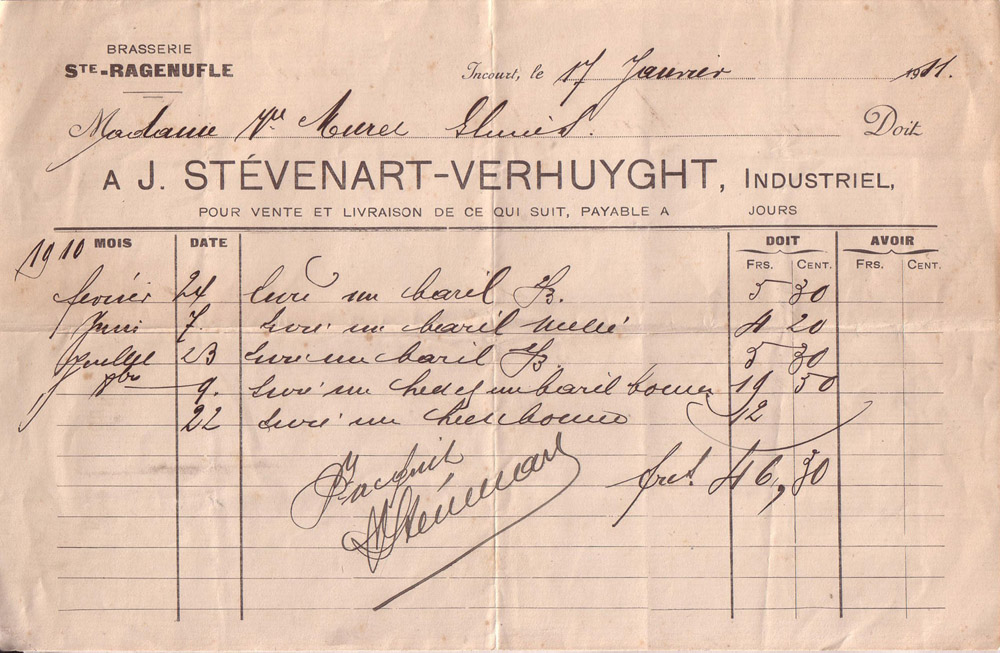 BRASSERIE
STE-RAGENUFLE
Incourt, le 17 Janvier 1911.
Madame Vve Doit
A J. STÉVENART-VERHUYGHT, INDUSTRIEL,
POUR VENTE ET LIVRAISON DE CE QUI SUIT, PAYABLE A JOURS
1910 MOIS DATE DOIT AVOIR
FRS. CENT. FRS. CENT.
février 24 livré un baril 5 30
Juin 7. livré un baril 4 20
Juillet 23 livré un baril 5 30
9. livré un un baril 19 50
22 livré un 12
frcs. 46,30
Pr acquit
Stévenart